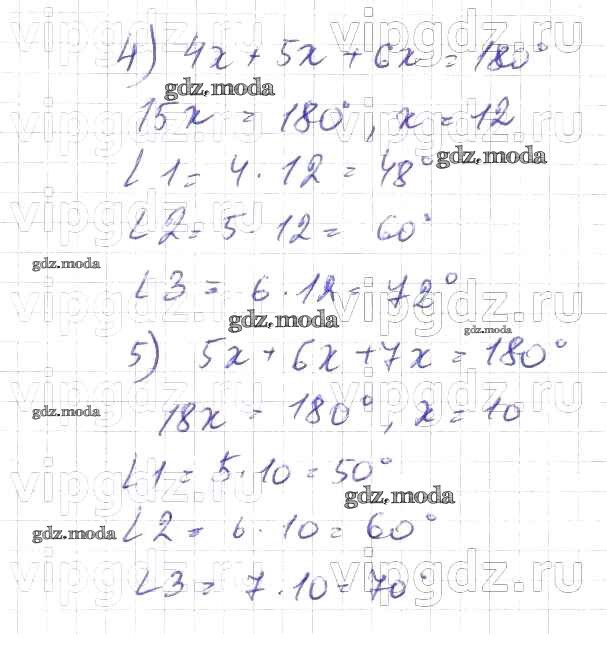 vipgdz.ru vipgdz.ru
4) 4x + 5x + 6x = 180°
gdz.moda
vipgdz.ru vipgdz.ru
15x = 180°, x = 12
gdz.moda
∠1 = 4 · 12 = 48°
vipgdz.ru vipgdz.ru
∠2 = 5 · 12 = 60°
gdz.moda
∠3 = 6 · 12 = 72°
vipgdz.ru vipgdz.ru
gdz.moda
gdz.moda
5) 5x + 6x + 7x = 180°
vipgdz.ru vipgdz.ru
gdz.moda
18x = 180°, x = 10
∠1 = 5 · 10 = 50°
vipgdz.ru vipgdz.ru
gdz.moda
gdz.moda
∠2 = 6 · 10 = 60°
vipgdz.ru vipgdz.ru
∠3 = 7 · 10 = 70°